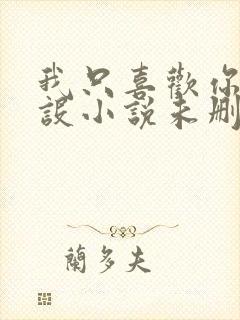 我只喜歡你
設小說未刪
蘭多夫